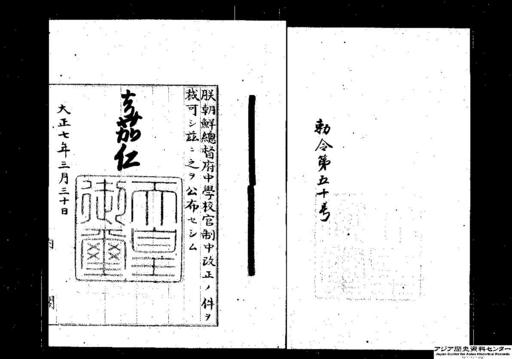 勅令第五十号
朕朝鮮總督府中學校官制中改正ノ件ヲ
裁可シ茲ニ之ヲ公布セシム
嘉仁
天皇
御璽
大正七年三月三十日
内閣
アジア歴史資料センター
Japan Center for Asian Historical Records